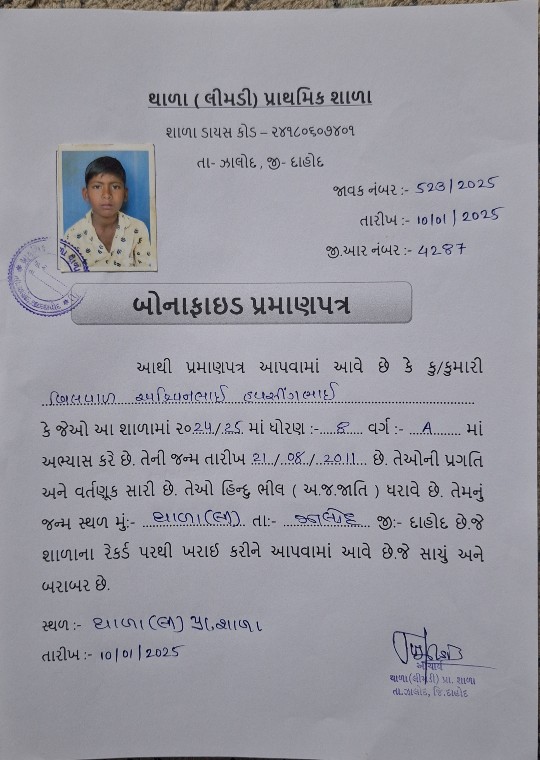 થાળા ( લીમડી) પ્રાથમિક શાળા
શાળા ડાયસ કોડ – ૨૪૧૮૦૬૦૭૪૦૧
તા- ઝાલોદ , જી- દાહોદ
જાવક નંબર :- 523/2025
તારીખ :- 10/01/2025
જી.આર નંબર :- 4287
બોનાફાઇડ પ્રમાણપત્ર
આથી પ્રમાણપત્ર આપવામાં આવે છે કે કુ/કુમારી
અશ્વિનભાઈ
કે જેઓ આ શાળામાં ૨૦24/25 માં ધોરણ :- 8 વર્ગ :- A માં
અભ્યાસ કરે છે. તેની જન્મ તારીખ 21/08/2011 છે. તેઓની પ્રગતિ
અને વર્તણૂક સારી છે. તેઓ હિન્દુ ભીલ ( અ.જ.જાતિ ) ધરાવે છે. તેમનું
જન્મ સ્થળ મું:- થાળા(લી) તા:- ઝાલોદ જી:- દાહોદ છે.જે
શાળાના રેકર્ડ પરથી ખરાઈ કરીને આપવામાં આવે છે.જે સાચું અને
બરાબર છે.
સ્થળ :- થાળા(લી) પ્રા.શાળા
તારીખ :- 10/01/2025
આચાર્ય
થાળા(લીમડી) પ્રા. શાળા
તા.ઝાલોદ, જિ.દાહોદ